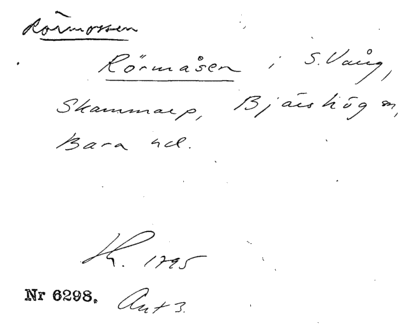 Rörmossen
Rörmåsen i S. Vång,
Skammarp, Bjärshög sn,
Bara hd.
Kr. 1795
Nr 6298. Akt 3.